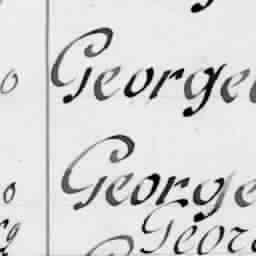 o George
o George
Geor